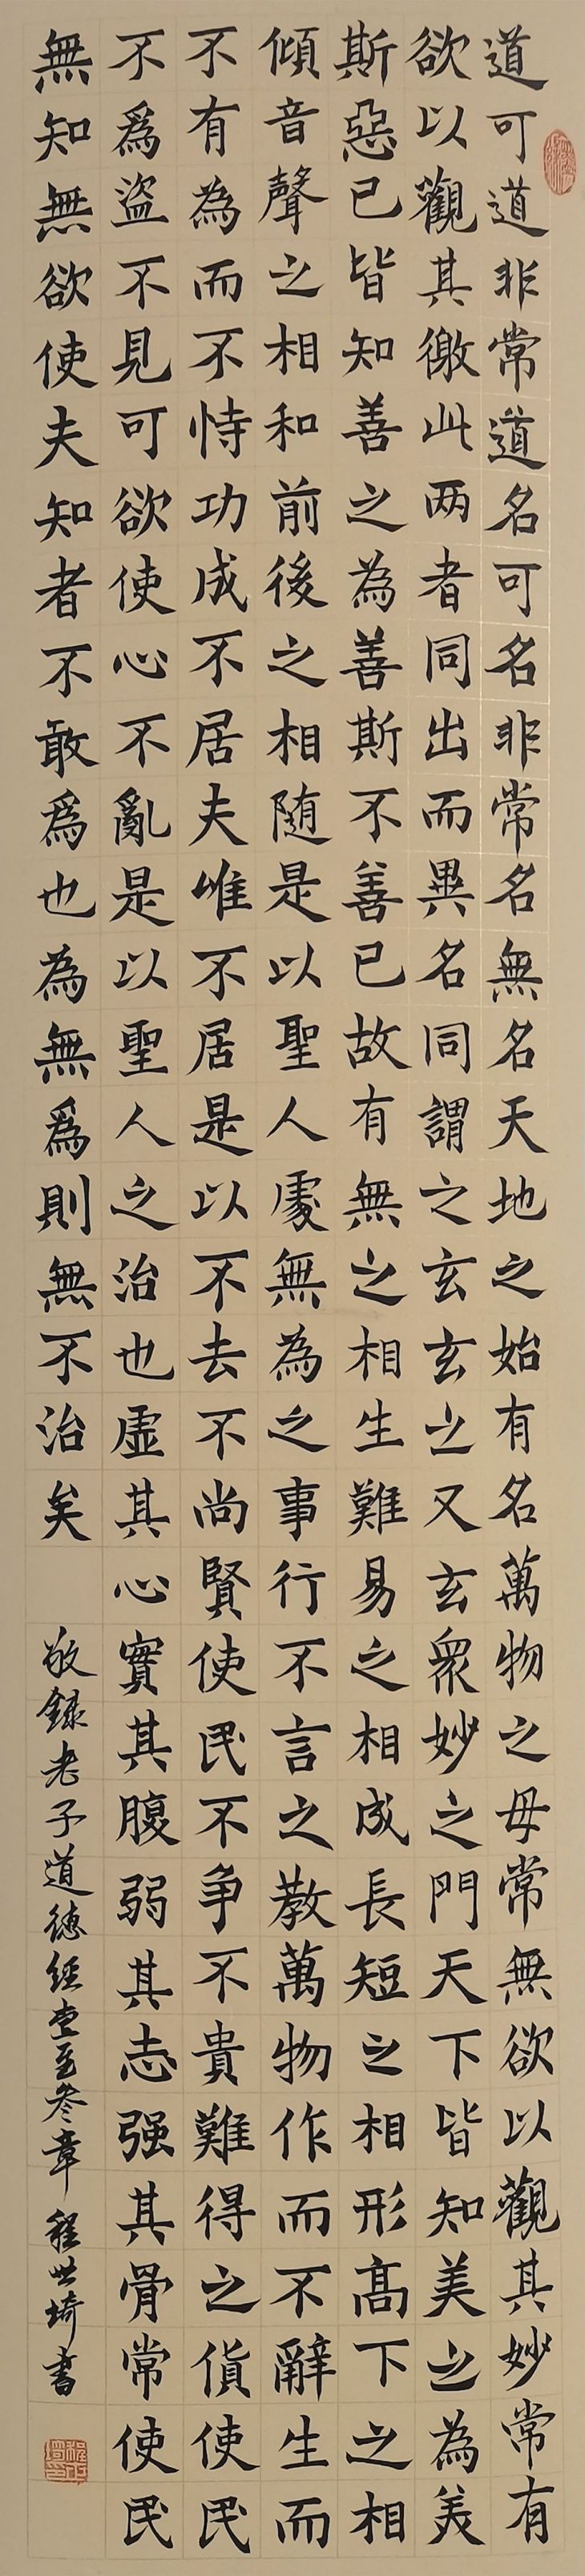 道可道非常道名可名非常名無名天地之始有名萬物之母常無欲以觀其妙常有
欲以觀其徼此两者同出而異名同謂之玄玄之又玄衆妙之門天下皆知美之為美
斯惡已皆知善之為善斯不善已故有無之相生難易之相成長短之相形高下之相
傾音聲之相和前後之相随是以聖人處無為之事行不言之教萬物作而不辭生而
不有為而不恃功成不居夫唯不居是以不去不尚賢使民不争不貴難得之貨使民
不爲盜不見可欲使心不亂是以聖人之治也虛其心實其腹弱其志强其骨常使民
無知無欲使夫知者不敢爲也為無爲則無不治矣
敬録老子道德經壹至叁章 程世埼書